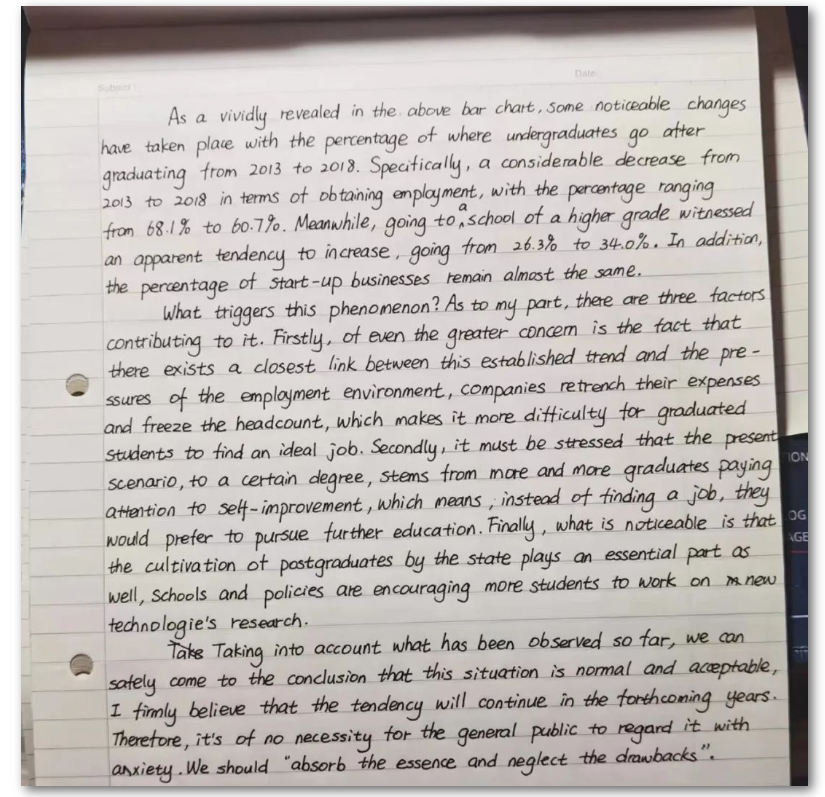 Subject
Date
As a vividly revealed in the above bar chart, some noticeable changes
have taken place with the percentage of where undergraduates go after
graduating from 2013 to 2018. Specifically, a considerable decrease from
2013 to 2018 in terms of obtaining employment, with the percentage ranging
from 68.1% to 60.7%. Meanwhile, going to a school of a higher grade witnessed
an apparent tendency to increase, going from 26.3% to 34.0%. In addition,
the percentage of start-up businesses remain almost the same.
What triggers this phenomenon? As to my part, there are three factors
contributing to it. Firstly, of even the greater concern is the fact that
there exists a closest link between this established trend and the pre-
ssures of the employment environment, companies retrench their expenses
and freeze the headcount, which makes it more difficulty for graduated
students to find an ideal job. Secondly, it must be stressed that the present
scenario, to a certain degree, stems from more and more graduates paying
attention to self-improvement, which means, instead of finding a job, they
would prefer to pursue further education. Finally, what is noticeable is that
the cultivation of postgraduates by the state plays an essential part as
well, schools and policies are encouraging more students to work on new
technologie's research.
Take Taking into account what has been observed so far, we can
safely come to the conclusion that this situation is normal and acceptable,
I firmly believe that the tendency will continue in the forthcoming years.
Therefore, it's of no necessity for the general public to regard it with
anxiety. We should "absorb the essence and neglect the drawbacks".